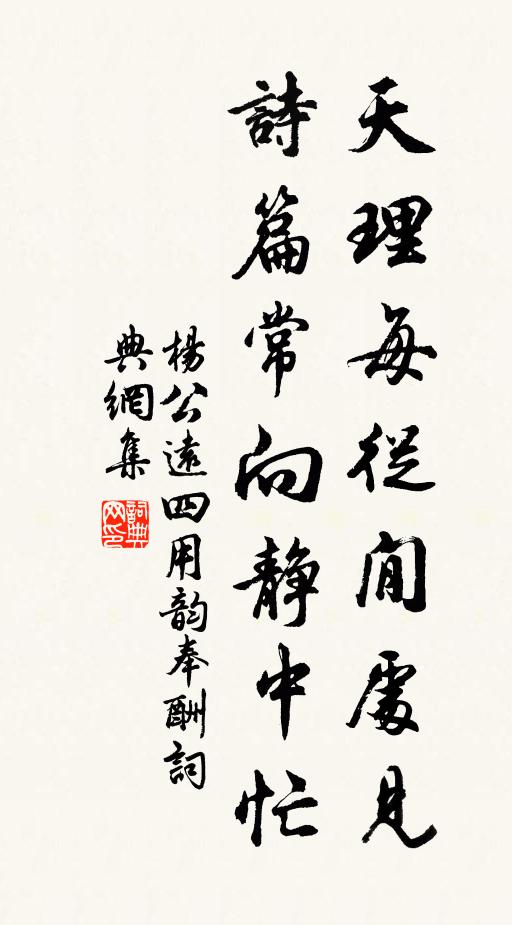 天理每從閒處見
詩篇常向静中忙
楊公遠四用韵奉酬詞
典網集
詞典网印